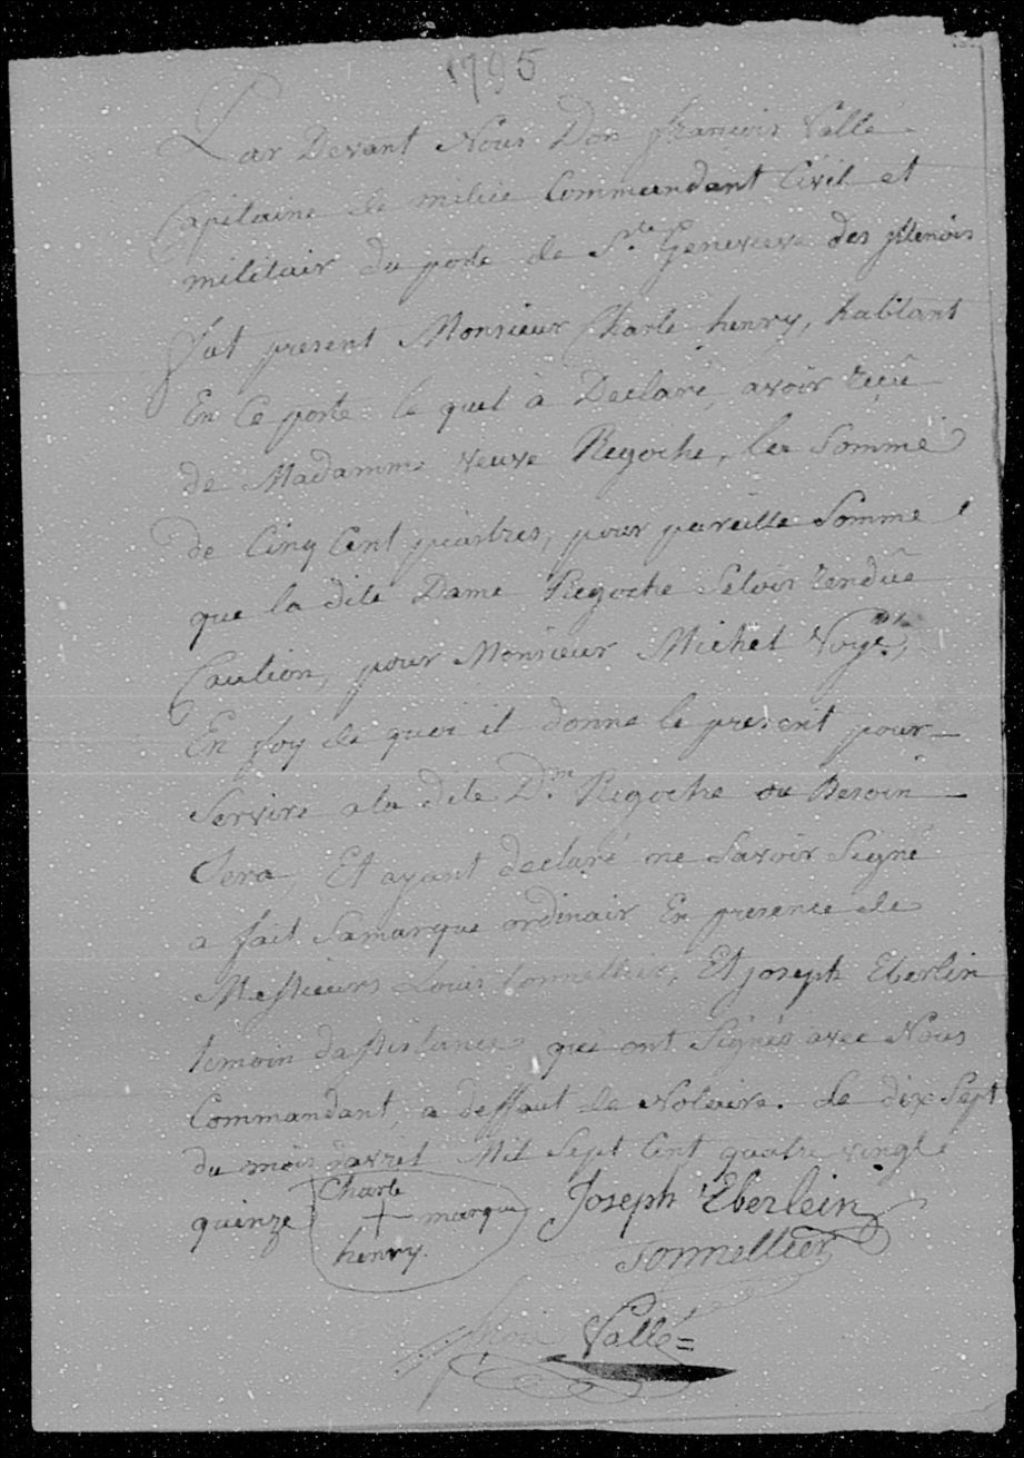 1795
Par Devant Nous Don françois Vallé
Capitaine de milice Commandant Civil et
militair du poste de S.te Genevieve des yllinois
fut present Monsieur Charle henry, habitant
En Ce poste le quel à Declaré, avoir reçû
de Madamme veuve Regoche, la Somme
de Cinq Cent piastres, pour pareille Somme
que la dite Dame Regoche Setoit rendüe
Caution, pour Monsieur Michel
En foy de quoi il donne le present pour
Servire a la dite D.me Regoche ou Besoin
Sera, Et ayant declaré ne Savoir Signé
a fait Samarque ordinair En presence de
Messieurs Louis tonnellier, Et joseph Eberlin
temoin dassistance qui ont Signés avec Nous
Commandant, a deffaut de Notaire. Le dix Sept
du mois davril Mil Sept Cent quatre vingt
quinze
Charle
+ marque
henry.
Joseph Eberlein
tonnellier
Vallé=